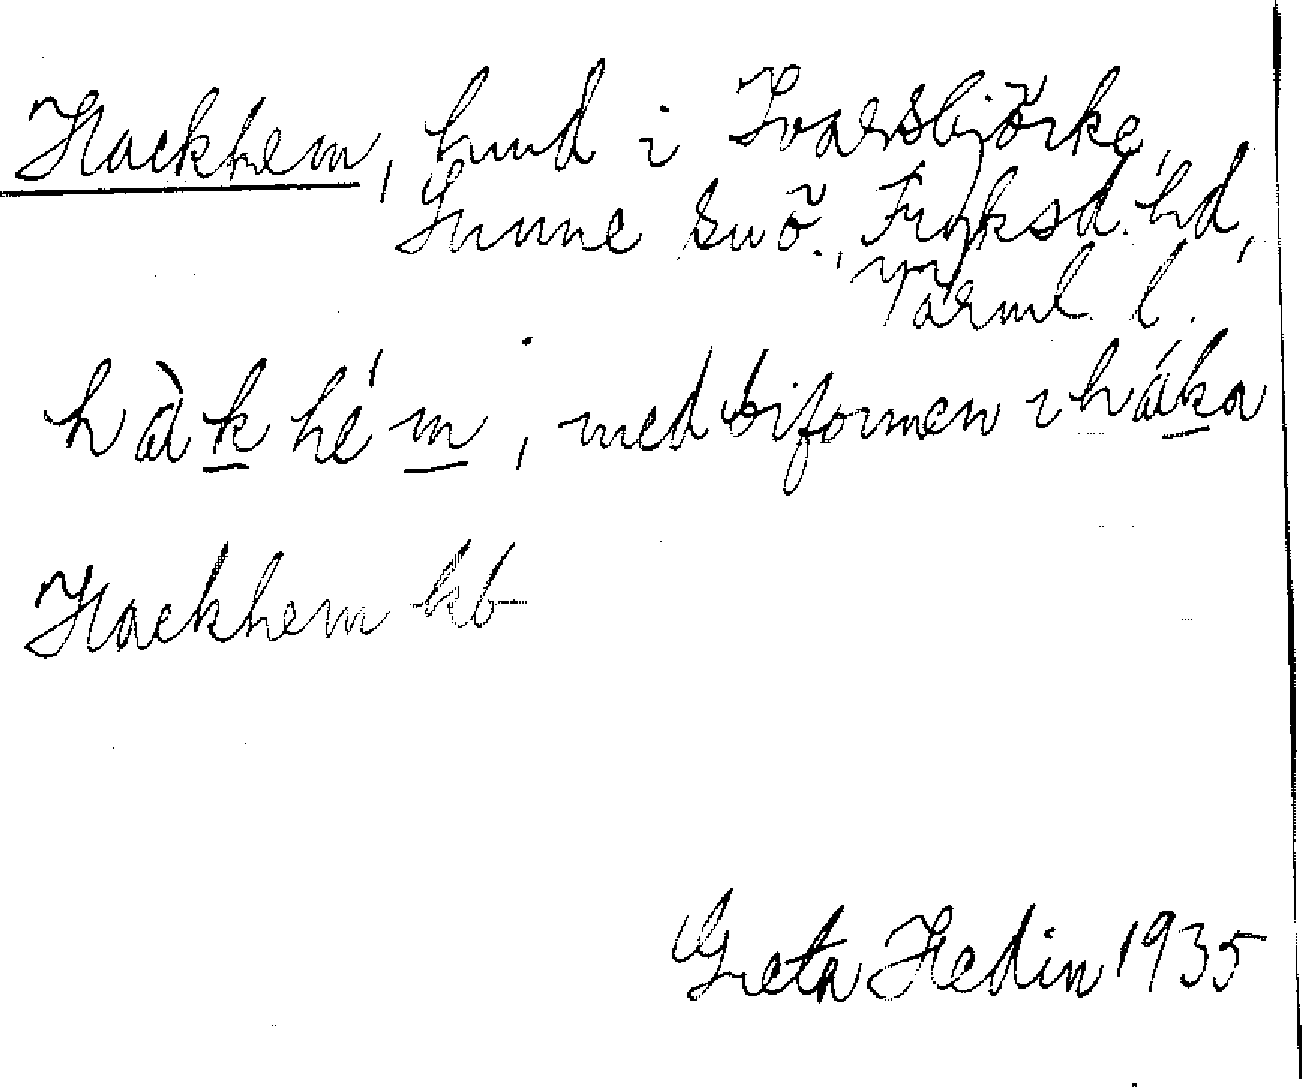 Hackhem, hmd i Ivarsbjörke,
Sunne snö., Fryksd. hd,
Värml. l.
hàkhém, med biformen i háka
Hackhem kb
Greta Hedin 1935